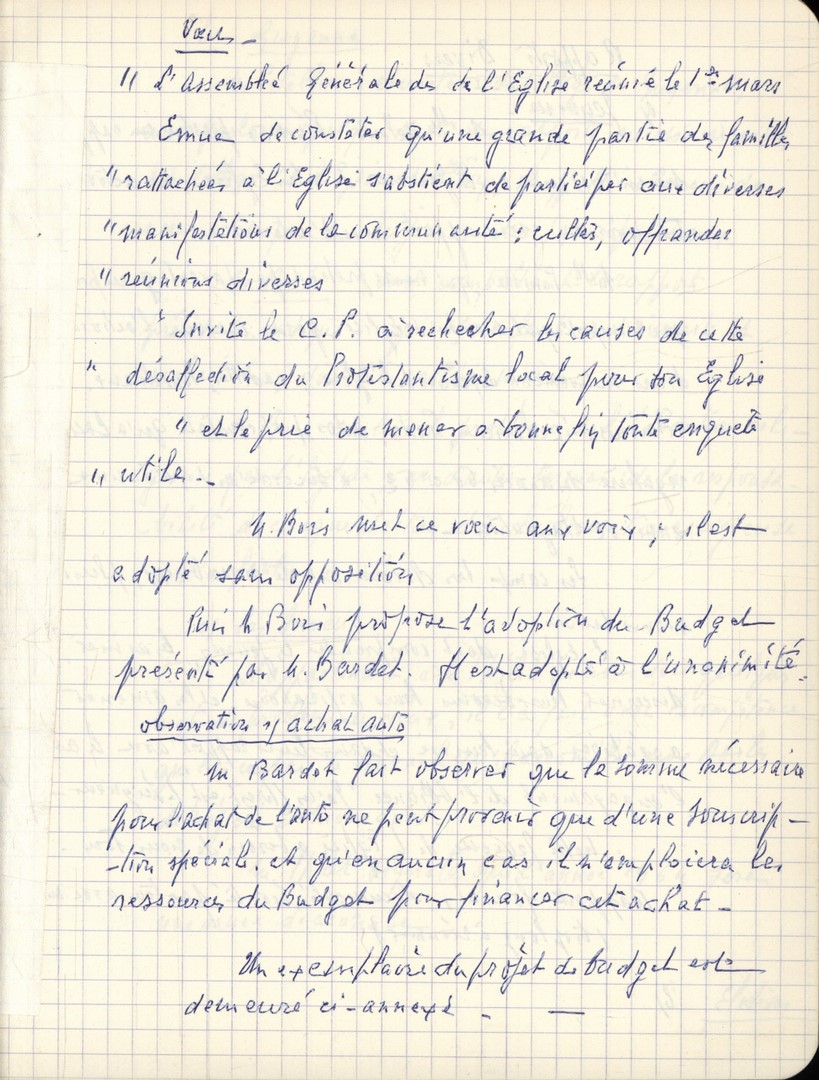 Vœu -
" L'Assemblée Générale de de l'Eglise réunie le 1er mars
Emue de constater qu'une grande partie des familles
" rattachées à l'Eglise s'abstient de participer aux diverses
" manifestations de la communauté : cultes, offrandes
" réunions diverses
" Invite le C. P. à rechecher les causes de cette
" désaffection du Protestantisme local pour son Eglise
" et le prie de mener à bonne fin toute enquête
" utile. -
M. Bois met ce vœu aux voix ; il est
adopté sans opposition
Puis M Bois propose l'adoption du Budget
présenté par M. Bardet. Il est adopté à l'unanimité.
observation s/ achat auto
M Bardet fait observer que la somme nécessaire
pour l'achat de l'auto ne peut provenir que d'une souscrip-
-tion spéciale. et qu'en aucun cas il n'emploiera les
ressources du Budget pour financer cet achat -
Un exemplaire du projet de budget est
demeuré ci-annexé - —